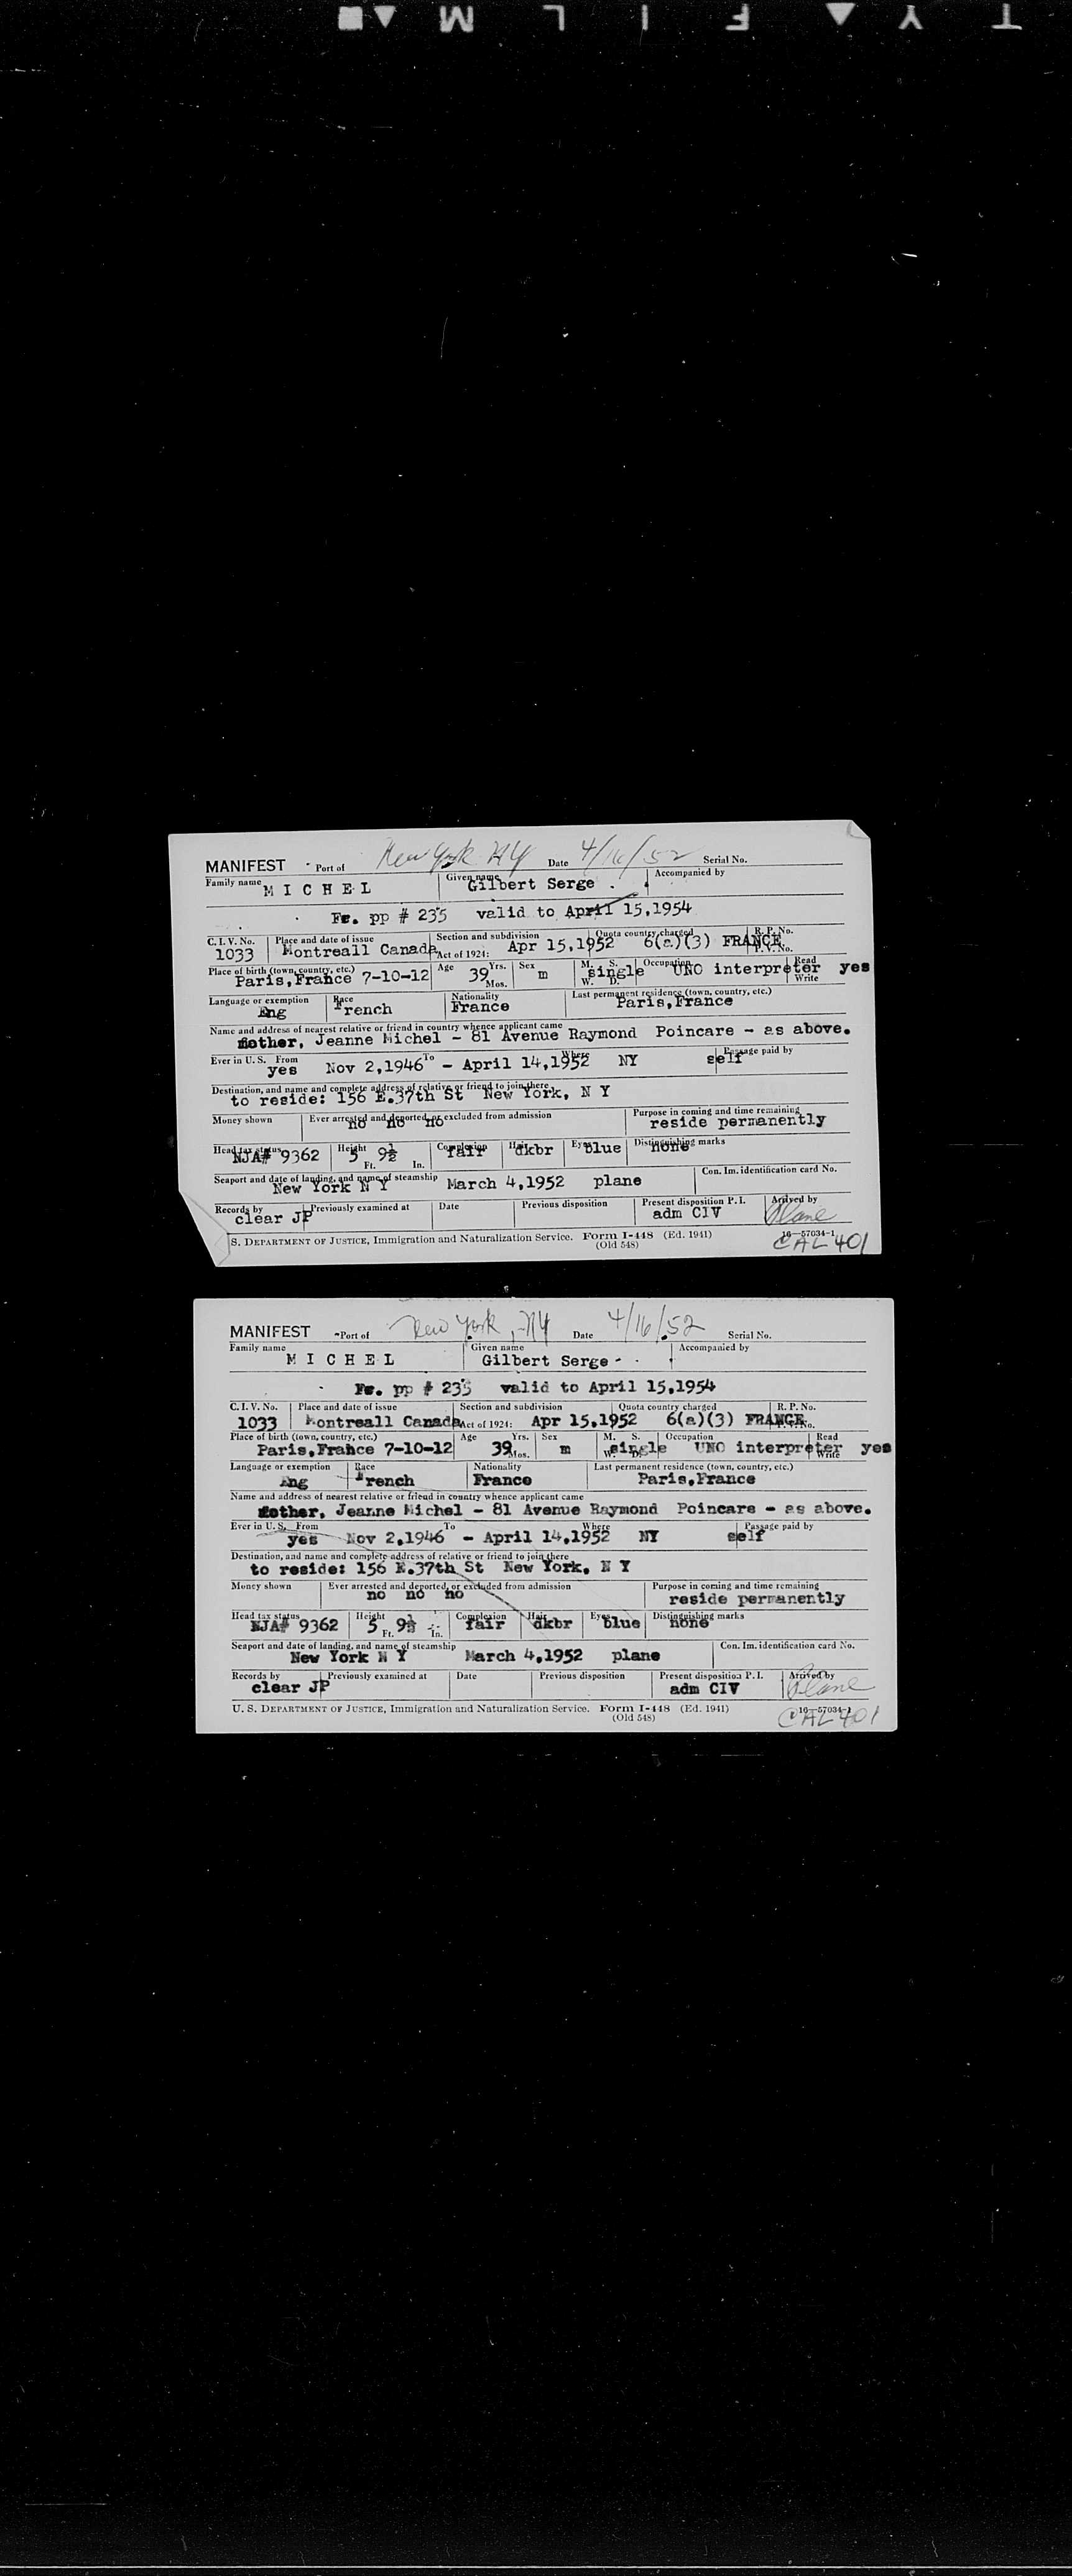 MANIFEST Port of New York NY Date 4/16/52 Serial No.
Family name M I C H E L Given name Gilbert Serge Accompanied by
Fr. pp # 235 valid to April 15,1954
C. I. V. No. Place and date of issue Section and subdivision Quota country charged R. P. No.
1033 Montreall Canada Act of 1924: Apr 15,1952 6(a)(3) FRANCE P. V. No.
Place of birth (town, country, etc.) Age Yrs. Sex M. S. Occupation Read
Paris,France 7-10-12 39 Mos. m W. D. single UNO interpreter Write yes
Language or exemption Race Nationality Last permanent residence (town, country, etc.)
Eng French France Paris,France
Name and address of nearest relative or friend in country whence applicant came
Mother, Jeanne Michel - 81 Avenue Raymond Poincare - as above.
Ever in U. S. From To Where Passage paid by
yes Nov 2,1946 - April 14,1952 NY self
Destination, and name and complete address of relative or friend to join there
to reside: 156 E.37th St New York, N Y
Money shown Ever arrested and deported, or excluded from admission Purpose in coming and time remaining
no no no reside permanently
Head tax status Height Complexion Hair Eyes Distinguishing marks
NJA# 9362 5 Ft. 9½ In. fair dkbr blue none
Seaport and date of landing, and name of steamship Con. Im. identification card No.
New York N Y March 4,1952 plane
Records by Previously examined at Date Previous disposition Present disposition P. I. Arrived by
clear JP adm CIV Plane
S. DEPARTMENT OF JUSTICE, Immigration and Naturalization Service. Form I-448 (Ed. 1941) 16—57034-1
(Old 548) CAL 401
MANIFEST Port of New York, NY Date 4/16/52 Serial No.
Family name Given name Accompanied by
M I C H E L Gilbert Serge
Fr. pp # 235 valid to April 15,1954
C. I. V. No. Place and date of issue Section and subdivision Quota country charged R. P. No.
1033 Montreall Canada Act of 1924: Apr 15,1952 6(a)(3) FRANCE P. V. No.
Place of birth (town, country, etc.) Age Yrs. Sex M. S. Occupation Read
Paris,France 7-10-12 39 Mos. m W. D. single UNO interpreter Write yes
Language or exemption Race Nationality Last permanent residence (town, country, etc.)
Eng French France Paris,France
Name and address of nearest relative or friend in country whence applicant came
Mother, Jeanne Michel - 81 Avenue Raymond Poincare - as above.
Ever in U. S. From To Where Passage paid by
yes Nov 2,1946 - April 14,1952 NY self
Destination, and name and complete address of relative or friend to join there
to reside: 156 E.37th St New York, N Y
Money shown Ever arrested and deported, or excluded from admission Purpose in coming and time remaining
no no no reside permanently
Head tax status Height Complexion Hair Eyes Distinguishing marks
NJA# 9362 5 Ft. 9½ In. fair dkbr blue none
Seaport and date of landing, and name of steamship Con. Im. identification card No.
New York N Y March 4,1952 plane
Records by Previously examined at Date Previous disposition Present disposition P. I. Arrived by
clear JP adm CIV Plane
U. S. DEPARTMENT OF JUSTICE, Immigration and Naturalization Service. Form I-448 (Ed. 1941) 16—57034-1
(Old 548) CAL 401